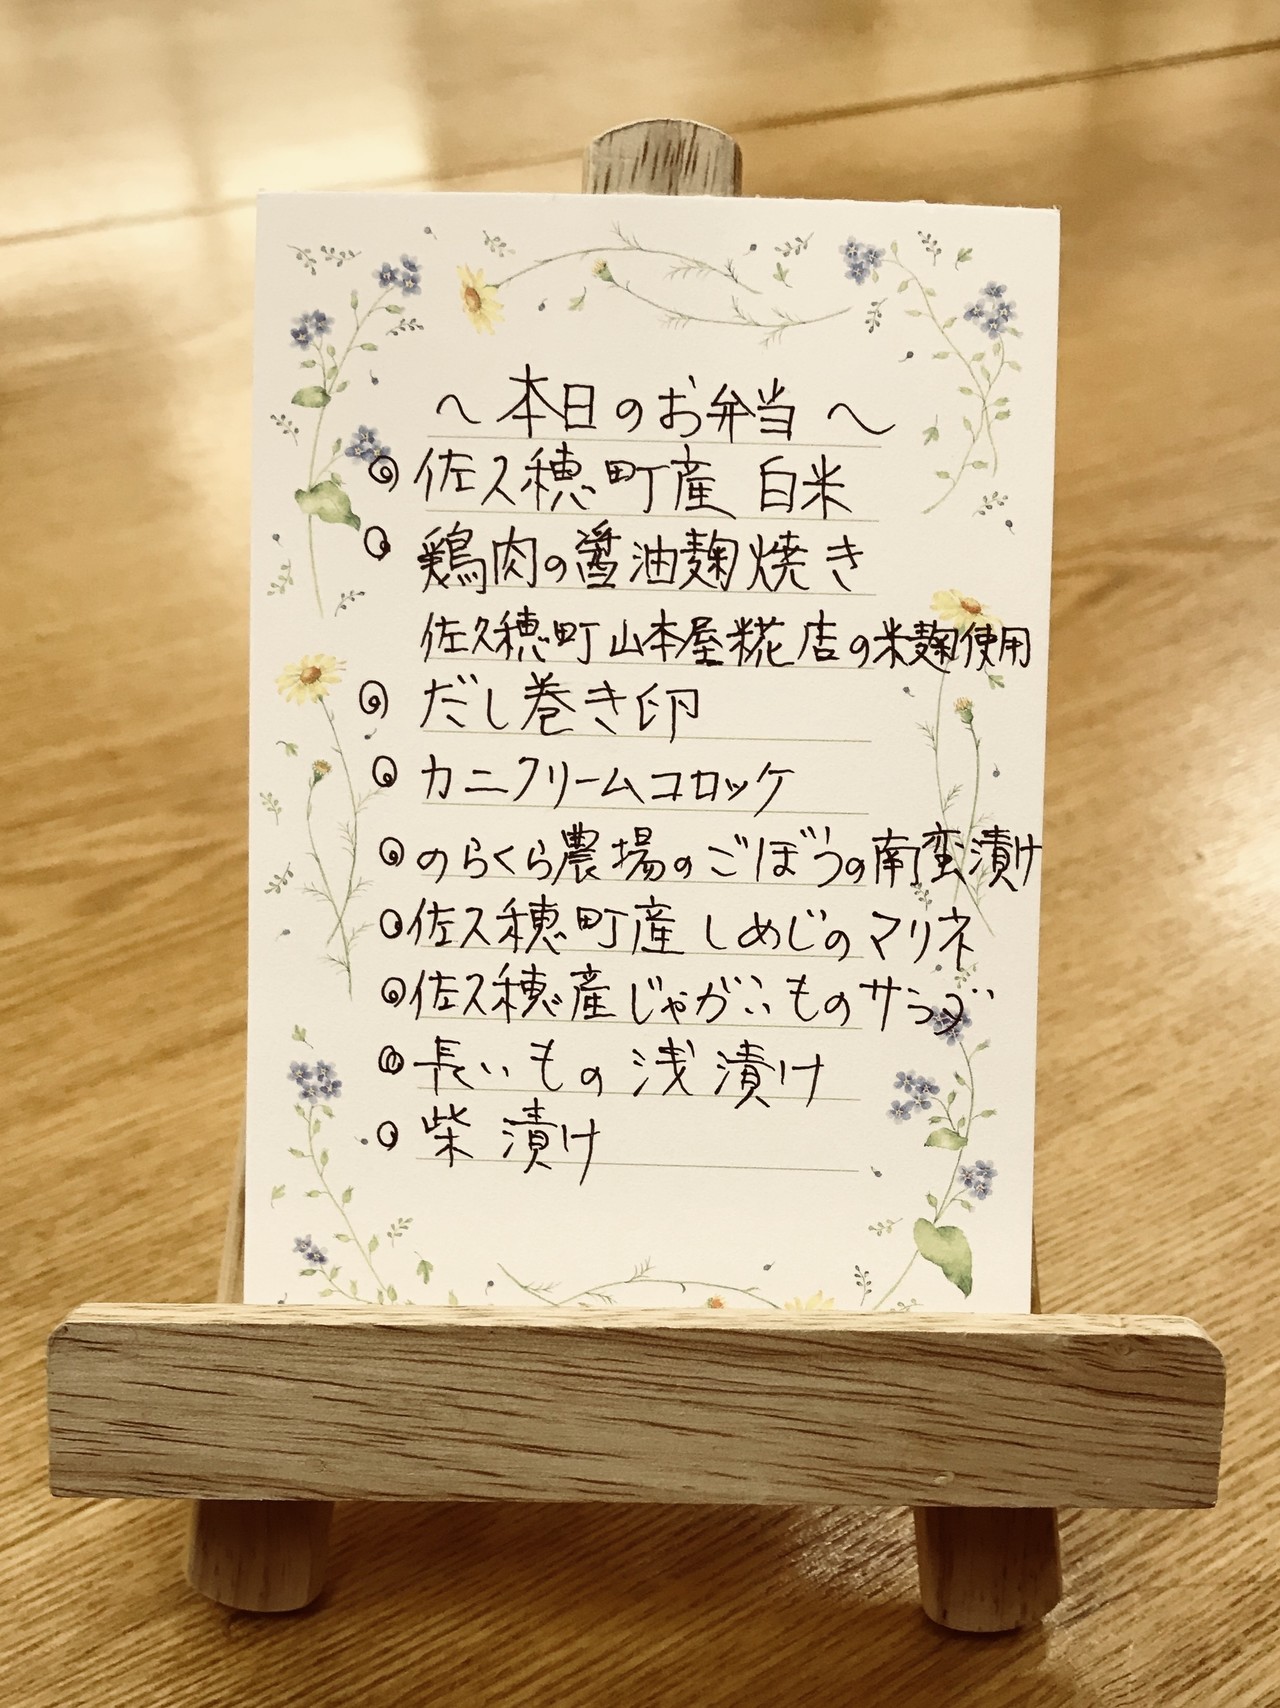 ～本日のお弁当～
◎佐久穂町産 白米
◎鶏肉の醤油麹焼き
佐久穂町山本屋糀店の米麹使用
◎だし巻き卵
◎カニクリームコロッケ
◎のらくら農場のごぼうの南蛮漬け
◎佐久穂町産しめじのマリネ
◎佐久穂産じゃがいものサラダ
◎長いもの浅漬け
◎柴漬け